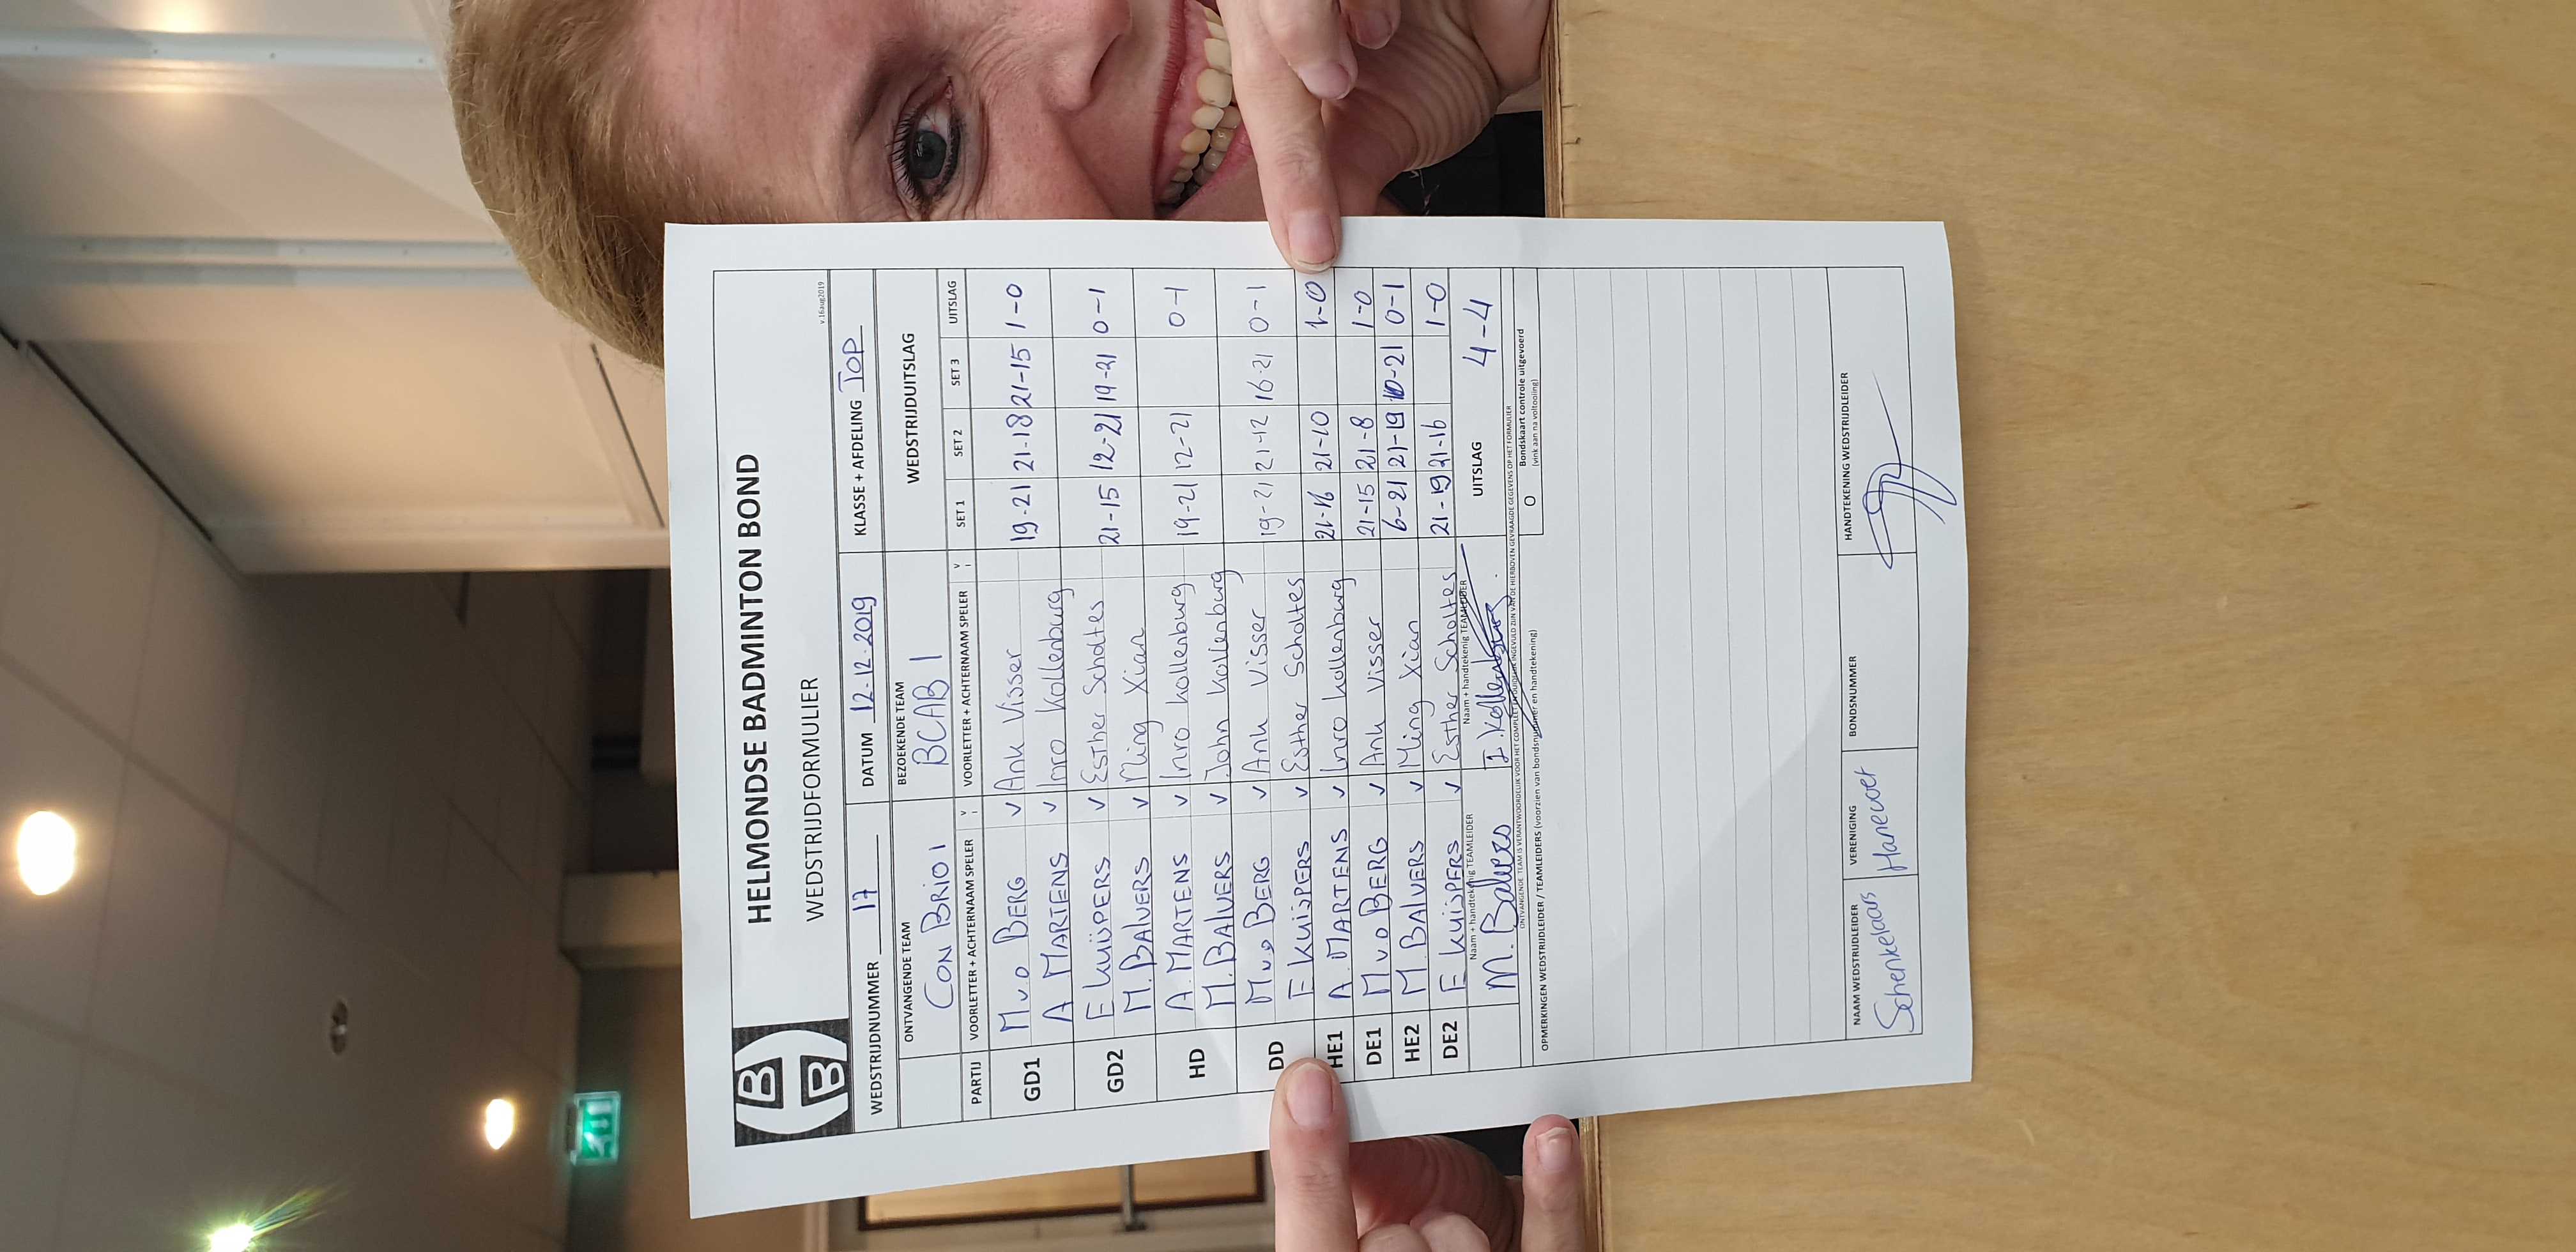 HELMONDSE BADMINTON BOND
WEDSTRIJDFORMULIER
v.16aug2019
WEDSTRIJDNUMMER 17 DATUM 12-12-2019 KLASSE + AFDELING TOP
ONTVANGENDE TEAM BEZOEKENDE TEAM WEDSTRIJDUITSLAG
CON BRIO 1 BCAB 1
PARTIJ VOORLETTER + ACHTERNAAM SPELER V VOORLETTER + ACHTERNAAM SPELER V SET 1 SET 2 SET 3 UITSLAG
GD1 M v D BERG v Ank Visser 19-21 21-18 21-15 1-0
A MARTENS v Inro Kollenburg
GD2 E KUIJPERS v Esther Scholtes 21-15 12-21 19-21 0-1
M. BALVERS v Ming Xian
HD A. MARTENS v Inro Kollenburg 19-21 12-21 0-1
M. BALVERS v John Kollenburg
DD M v D BERG v Ank Visser 19-21 21-12 16-21 0-1
E KUIJPERS v Esther Scholtes
HE1 A. MARTENS v Inro Kollenburg 21-16 21-10 1-0
DE1 M v D BERG v Ank Visser 21-15 21-8 1-0
HE2 M. BALVERS v Ming Xian 6-21 21-19 10-21 0-1
DE2 E KUIJPERS v Esther Scholtes 21-19 21-16 1-0
Naam + handtekenig TEAMLEIDER Naam + handtekenig TEAMLEIDER UITSLAG 4-4
M. Balvers I. Kollenburg
ONTVANGENDE TEAM IS VERANTWOORDELIJK VOOR HET COMPLEET INGEVULD ZIJN VAN DE HIERBOVEN GEVRAAGDE GEGEVENS OP HET FORMULIER
O Bondskaart controle uitgevoerd
(vink aan na voltooiing)
OPMERKINGEN WEDSTRIJDLEIDER / TEAMLEIDERS (voorzien van bondsnummer en handtekening)
NAAM WEDSTRIJDLEIDER VERENIGING BONDSNUMMER HANDTEKENING WEDSTRIJDLEIDER
Schenkelaars Hanevoet